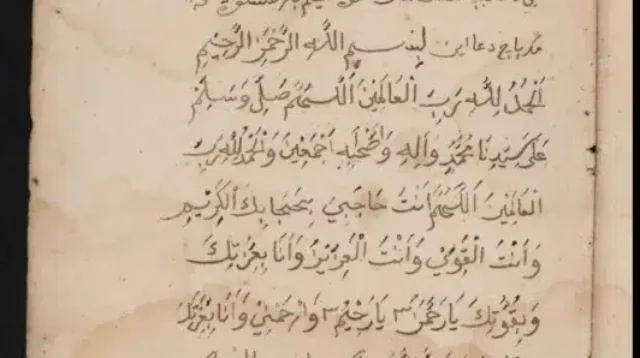 مك باچ دعا اين بِسْمِ اللَّه الرَّحْمَنِ الرَّحِيْمِ
اَلْحَمْدُ لِلَّهِ رَبِّ الْعَالَمِيْنَ اَللَّهُمَّ صَلِّ وَسَلِّمْ
عَلَى سَيِّدِنَا مُحَمَّدٍ وَاَلِهِ وَاَصْحَابِهِ اَجْمَعِيْنَ وَالْحَمْدُ لِلَّهِ رَبِّ
الْعَالَمِيْنَ اَللَّهُمَّ اَنْتَ حَاجِبِيْ بِحِجَابِكَ الْكَرِيْمِ
وَاَنْتَ الْقَوِيُّ وَاَنْتَ الْعَزِيْزُ وَاَنَا بِعِزَّتِكَ
وَبِقُوَّتِكَ يَارَحْمَنُ ٣ يَارَحِيْمُ ٣ وَارْحَمْنِيْ وَاَنَا بِعِزَّتِكَ